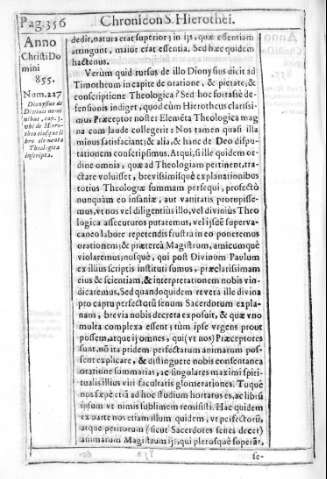 Pag. 356 Chronicon S. Hierothei.
Anno
Christi Do
mini
855.
Num. 227
Dionysius de
Diuinis nomi
nibus, cap. 3.
theologica
inscripta.
dedit, natura erat superior; in ijs, quæ essentiam
attingunt, maior erat essentia. Sed hæc quidem
hactenus.
Verum quid rursus de illo Dionysius dicit ad
Timotheum in capite de oratione, & pietate, &
conscriptione Theologica? Sed hoc fortasse de-
fensionis indiget, quod cùm Hierotheus clarissi-
mus Præceptor noster Elemēta Theologica mag
na cum laude collegerit: Nos tamen quasi illa
minus satisfaciant; & alia, & hanc de Deo dispu-
tationem conscripsimus. Atqui, si ille quidem or-
dine omnia, quæ ad Theologiam pertinent, tra-
ctare voluisset, breuissimisquè explanationibus
totius Theologiæ summam persequi, profectò
nunquàm eo insaniæ, aut vanitatis
mus, vt nos vel diligentiùs illo, vel diuiniùs Theo
logica assecuturos putaremus, vel ijsdē superva-
caneo labore repetendis frustra in eo poneremus
orationem; & præterea Magistrum, amicumquè
violaremus, nosquè, qui post Diuinum Paulum
ex illius scriptis instituti sumus, præclarissimam
eius & scientiam, & interpretationem nobis vin-
dicaremus. Sed quandoquidem reuera ille diuina
pro captu perfectorū senum Sacerdotum expla-
nans, breuia nobis decreta exposuit, & quæ vno
multa complexa essent; tùm ipse vrgens prout
possem, atque ij omnes, qui (vt nos) Præceptores
sunt, nō ita pridem perfectarum animarum pos-
sent explicare, & distinguere nobis consentanea
oratione summarias, ac singulares maximi spiri-
tualis illius viri facultatis glomerationes. Tuquè
nos sæpè etiā ad hoc studium hortatus es, ac librū
ipsum vt nimis sublimem remisisti. Hac quidem
ex parte nos etiam illum quidem, vt perfectorū,
atque peritorum (sicut Sacerdotes senes decet)
animarum Magistrum ijs, qui plerosquè superāt,
se-